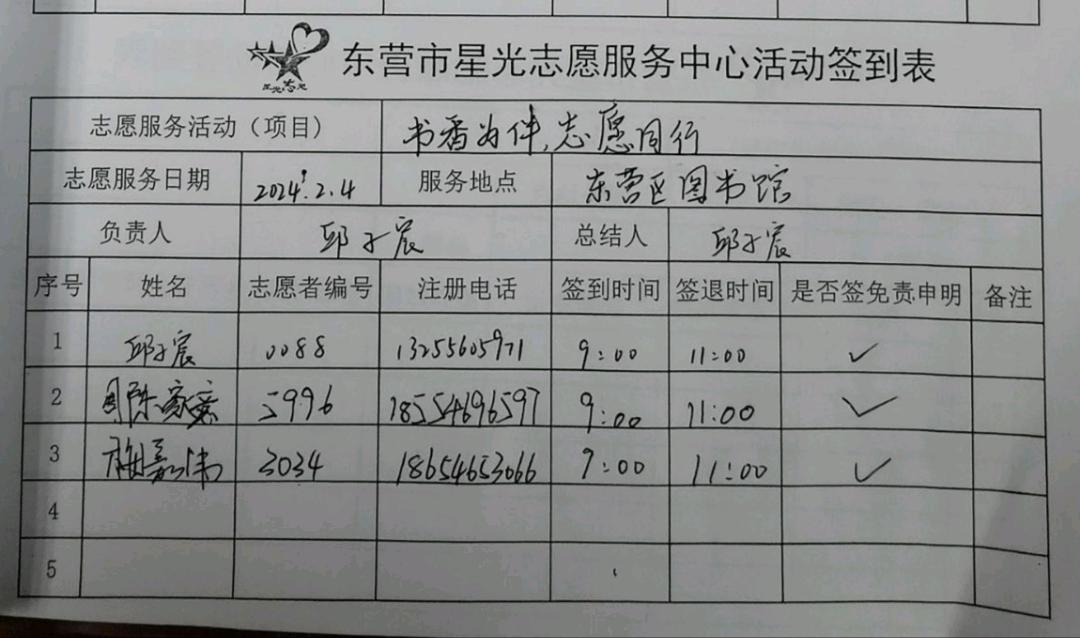 东营市星光志愿服务中心活动签到表
志愿服务活动（项目） 书香为伴,志愿同行
志愿服务日期 2024.2.4 服务地点 东营区图书馆
负责人 邱子宸 总结人 邱子宸
序号 姓名 志愿者编号 注册电话 签到时间 签退时间 是否签免责申明 备注
1 邱子宸 0088 13255605971 9:00 11:00 ✓
2 5996 18554696597 9:00 11:00 ✓
3 3034 18654653066 9:00 11:00 ✓
4
5